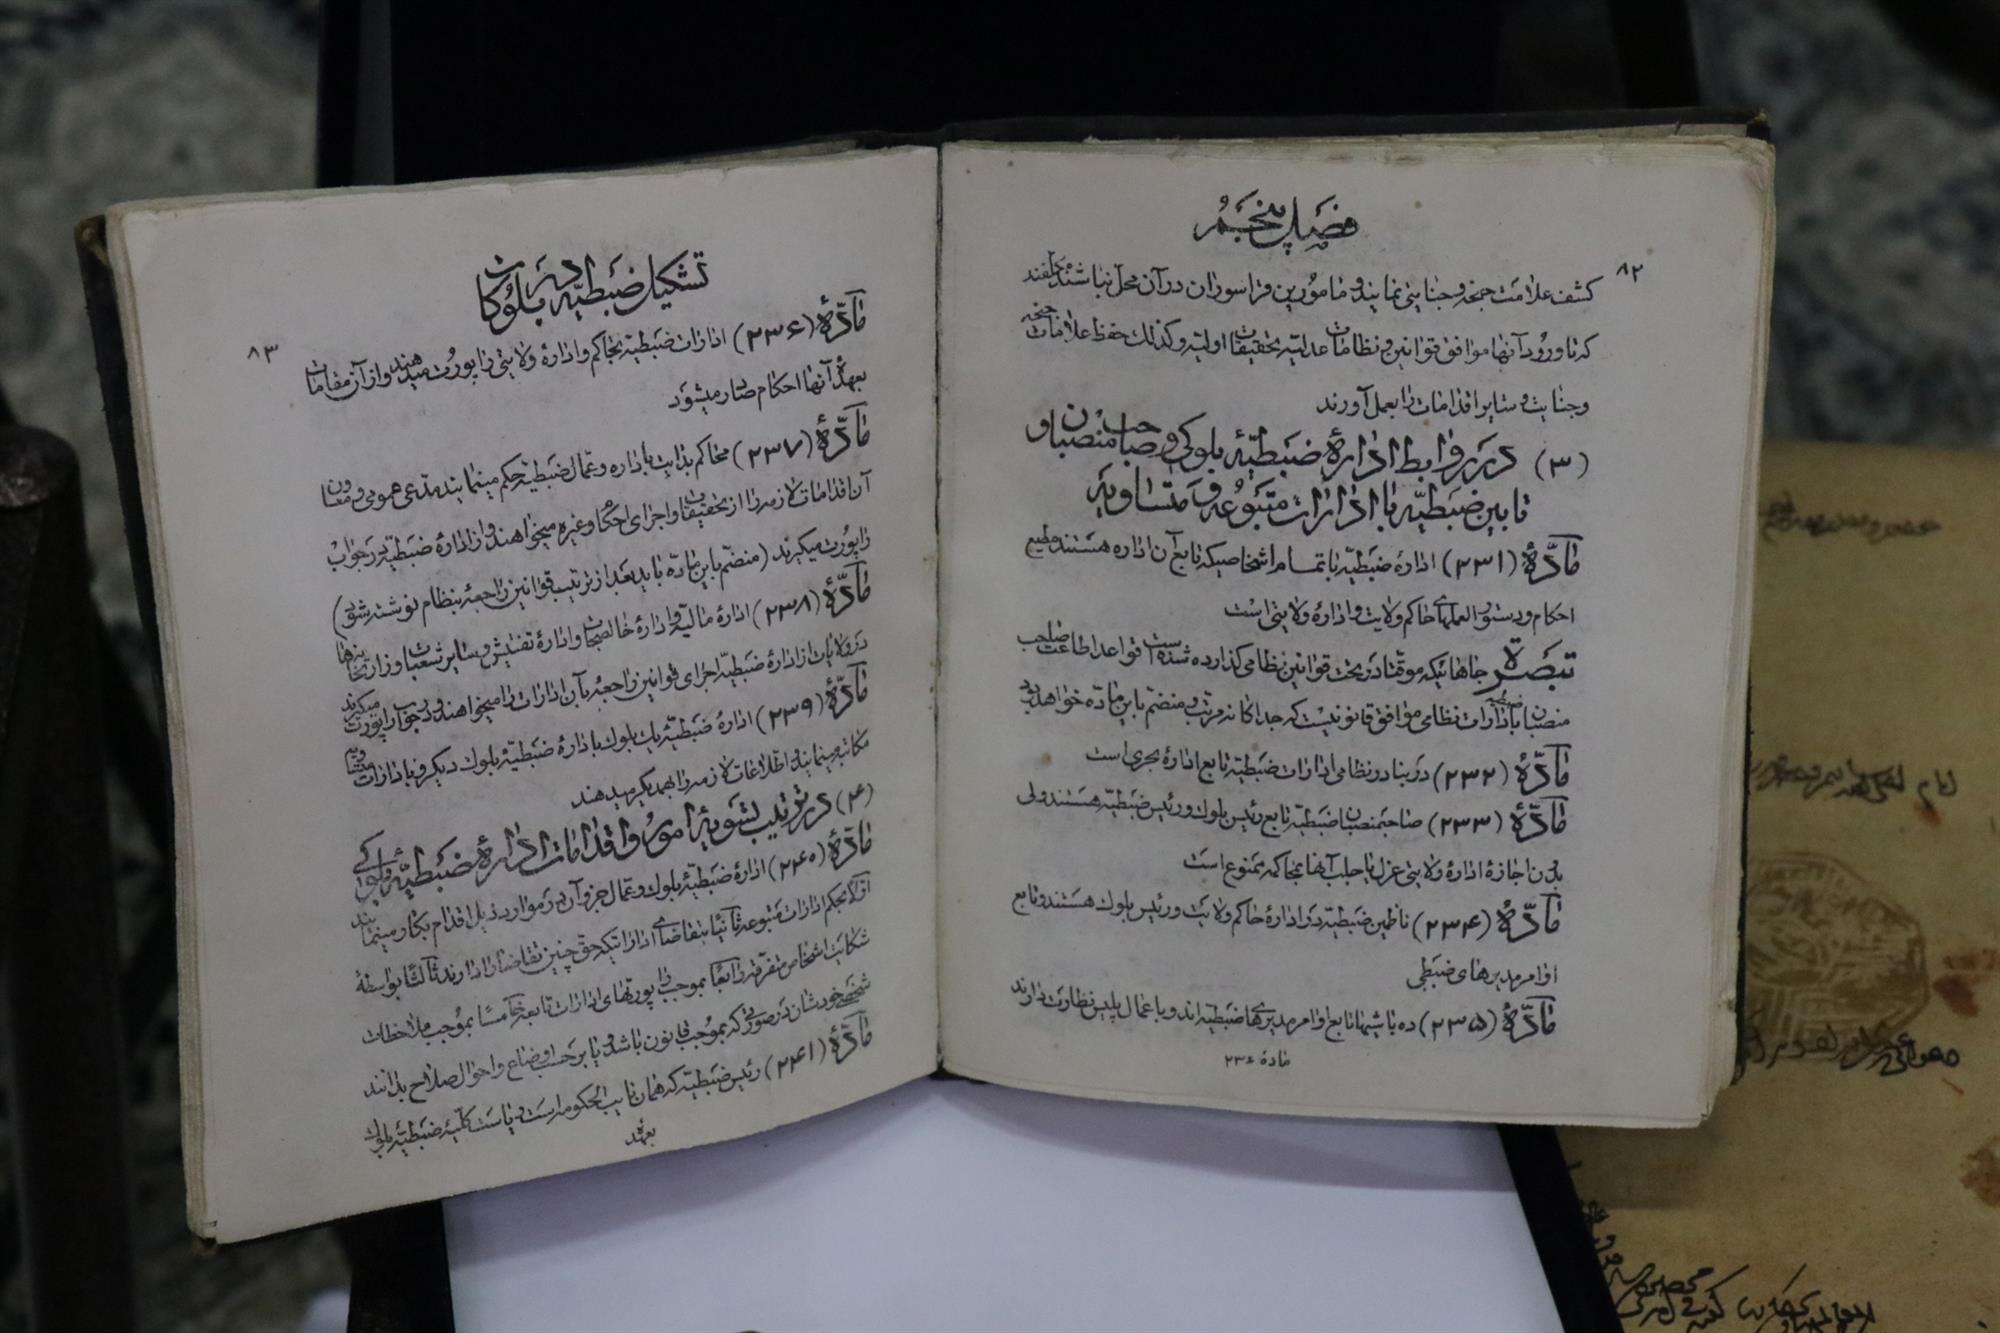 فصل پنجم
۸۲
کشف علامت جنحه و جنایتی نمایند و مأمورین قراسوران در آن محل نباشند مکلفند
که تا ورود آنها موافق قوانین و نظامات عدلیه تحقیقات اولیه و کذلك حفظ علامات جنحه
و جنایت و سایر اقدامات را بعمل آورند
(۳) در روابط ادارهٔ ضبطیهٔ بلوکی و صاحب منصبان و
تابین ضبطیه با ادارات متبوعه و متساویه
مادّهٔ (۲۳۱) ادارهٔ ضبطیه با تمام اشخاصیکه تابع آن اداره هستند مطیع
احکام و دستور العملهای حاکم ولایت و ادارهٔ ولایتی است
تبصره جاهائیکه موقتاً در تحت قوانین نظامی گذارده شده است قواعد اطاعت صاحب
منصبان ضبطیه با ادارات نظامی موافق قانونیست که جداگانه مرتب و منضم باین ماده خواهد بود
مادّهٔ (۲۳۲) در بنادر نظامی ادارات ضبطیه تابع ادارهٔ بحری است
مادّهٔ (۲۳۳) صاحبمنصبان ضبطیه تابع رئیس بلوك و رئیس ضبطیه هستند ولی
بدون اجازهٔ ادارهٔ ولایتی عزل یا جلب آنها بمحاکمه ممنوع است
مادّهٔ (۲۳۴) ناظمین ضبطیه در ادارهٔ حاکم ولایت و رئیس بلوك هستند و تابع
اوامر مدیرهای ضبطی
مادّهٔ (۲۳۵) ده باشیها تابع اوامر مدیرهای ضبطیه اند و با عمال پلیس نظارت دارند
مادهٔ ۲۳۶
تشکیل ضبطیه در بلوکات
۸۳
مادّهٔ (۲۳۶) ادارات ضبطیه بحاکم و ادارهٔ ولایتی راپورت میدهند و از آن مقامات
بعهدهٔ آنها احکام صادر میشود
مادّهٔ (۲۳۷) محاکم بدایت باداره و عمال ضبطیه حکم مینمایند مدعی عمومی و معاون
آن اقدامات لازمه را از تحقیقات و اجرای احکام و غیره میخواهند و از ادارهٔ ضبطیه در جواب
راپورت میگیرند (منضم باین ماده باید بعد از ترتیب قوانین راجعهٔ بنظام نوشته شود)
مادّهٔ (۲۳۸) ادارهٔ مالیه و ادارهٔ خالصجات و ادارهٔ تفتیش و سایر شعبات وزارتخانها
در ولایات از ادارهٔ ضبطیه اجرای قوانین راجعهٔ بآن ادارات را میخواهند و در جواب راپورت میگیرند
مادّهٔ (۲۳۹) ادارهٔ ضبطیهٔ یك بلوك با ادارهٔ ضبطیهٔ بلوك دیگر و با ادارات متساویه
مکاتبه مینمایند و اطلاعات لازمه را بهمدیگر میدهند
(۴) در ترتیب تسویهٔ امور و اقدامات ادارهٔ ضبطیهٔ بلوکی
مادّهٔ (۲۴۰) ادارهٔ ضبطیهٔ بلوك و عمال جزو آن در موارد ذیل اقدام بکار مینمایند
اولاً بحکم ادارات متبوعه ثانیاً بتقاضای اداراتیکه حق چنین تقاضا را دارند ثالثاً بواسطهٔ
شکایت اشخاص متفرقه رابعاً بموجب راپورتهای ادارات تابعه خامساً بموجب ملاحظات
شخصی خودشان در صورتی که بموجب قانون باشد و یا بر حسب اوضاع و احوال صلاح بدانند
مادّهٔ (۲۴۱) رئیس ضبطیه که همان نایب الحکومه است ریاست کلیهٔ ضبطیهٔ بلوك
بعهدهٔ